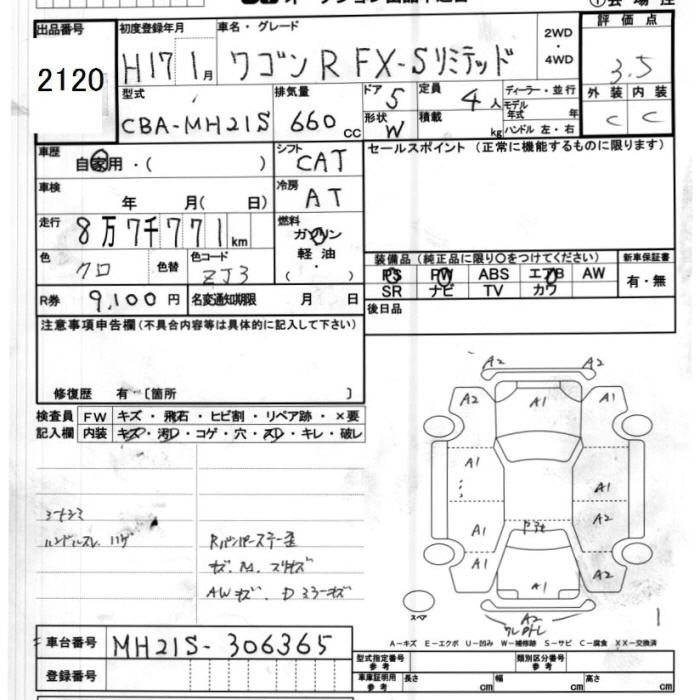 出品番号 初度登録年月 車名・グレード 2WD・4WD 評価点
2120 H17 1月 ワゴンR FX-Sリミテッド 3.5
型式 排気量 ドア 5 定員 4人 ディーラー・並行 外装 内装
CBA-MH21S 660cc 形状 W 積載 kg モデル年式 年 C C
ハンドル 左・右
車歴 自家用・( ) シフト CAT セールスポイント (正常に機能するものに限ります)
車検 年 月( 日) 冷房 AT
走行 8万7千771km 燃料 ガソリン
軽油
( ・ )
色 クロ 色替 色コード ZJ3
装備品 (純正品に限り〇をつけてください) 新車保証書
PS PW ABS エアB AW 有・無
SR ナビ TV カワ
R券 9,100円 名変通知期限 月 日 後日品
注意事項申告欄 (不具合内容等は具体的に記入して下さい)
修復歴 有 [箇所 ]
検査員 FW キズ・飛石・ヒビ割・リペア跡・×要
記入欄 内装 キズ・汚レ・コゲ・穴・スレ・キレ・破レ
A2 A2
A2 A1 A1
A1 A1
A2
A1 A1
A1 A2
ハンドルスレ ハゲ
AWキズ、Dミラーキズ
スペア
A2
1
A-キズ E-エクボ U-凹み W-補修跡 S-サビ C-腐食 XX-交換済
車台番号 MH21S-306365
登録番号
型式指定番号 参考 類別区分番号 参考
車庫証明用 参考 長さ cm 幅 cm 高さ cm